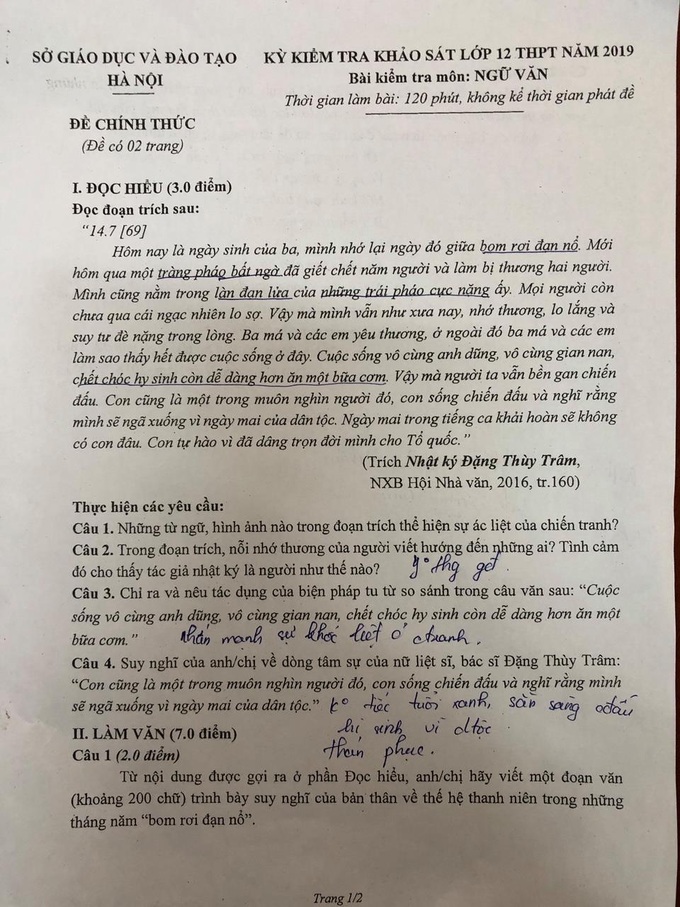 SỞ GIÁO DỤC VÀ ĐÀO TẠO
HÀ NỘI
KỲ KIỂM TRA KHẢO SÁT LỚP 12 THPT NĂM 2019
Bài kiểm tra môn: NGỮ VĂN
Thời gian làm bài: 120 phút, không kể thời gian phát đề
ĐỀ CHÍNH THỨC
(Đề có 02 trang)
I. ĐỌC HIỂU (3.0 điểm)
Đọc đoạn trích sau:
“14.7 [69]
Hôm nay là ngày sinh của ba, mình nhớ lại ngày đó giữa bom rơi đạn nổ. Mới
hôm qua một tràng pháo bất ngờ đã giết chết năm người và làm bị thương hai người.
Mình cũng nằm trong làn đạn lửa của những trái pháo cực nặng ấy. Mọi người còn
chưa qua cái ngạc nhiên lo sợ. Vậy mà mình vẫn như xưa nay, nhớ thương, lo lắng và
suy tư đè nặng trong lòng. Ba má và các em yêu thương, ở ngoài đó ba má và các em
làm sao thấy hết được cuộc sống ở đây. Cuộc sống vô cùng anh dũng, vô cùng gian nan,
chết chóc hy sinh còn dễ dàng hơn ăn một bữa cơm. Vậy mà người ta vẫn bền gan chiến
đấu. Con cũng là một trong muôn nghìn người đó, con sống chiến đấu và nghĩ rằng
mình sẽ ngã xuống vì ngày mai của dân tộc. Ngày mai trong tiếng ca khải hoàn sẽ không
có con đâu. Con tự hào vì đã dâng trọn đời mình cho Tổ quốc.”
(Trích Nhật ký Đặng Thùy Trâm,
NXB Hội Nhà văn, 2016, tr.160)
Thực hiện các yêu cầu:
Câu 1. Những từ ngữ, hình ảnh nào trong đoạn trích thể hiện sự ác liệt của chiến tranh?
Câu 2. Trong đoạn trích, nỗi nhớ thương của người viết hướng đến những ai? Tình cảm
đó cho thấy tác giả nhật ký là người như thế nào?
Câu 3. Chỉ ra và nêu tác dụng của biện pháp tu từ so sánh trong câu văn sau: “Cuộc
sống vô cùng anh dũng, vô cùng gian nan, chết chóc hy sinh còn dễ dàng hơn ăn một
bữa cơm.” nhấn mạnh sự khốc liệt ctranh.
Câu 4. Suy nghĩ của anh/chị về dòng tâm sự của nữ liệt sĩ, bác sĩ Đặng Thùy Trâm:
“Con cũng là một trong muôn nghìn người đó, con sống chiến đấu và nghĩ rằng mình
sẽ ngã xuống vì ngày mai của dân tộc.” k° tiếc tuổi xanh, sẵn sàng
hi sinh vì dtộc
II. LÀM VĂN (7.0 điểm)
thán phục.
Câu 1 (2.0 điểm)
Từ nội dung được gợi ra ở phần Đọc hiểu, anh/chị hãy viết một đoạn văn
(khoảng 200 chữ) trình bày suy nghĩ của bản thân về thế hệ thanh niên trong những
tháng năm “bom rơi đạn nổ”.
Trang 1/2